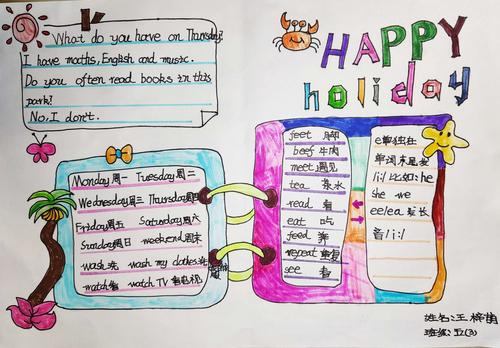 What do you have on Thursday?
I have maths, English and music.
Do you often read books in this
park?
No, I don't.
HAPPY
holiday
Monday周一 Tuesday周二
Wednesday周三 Thursday周四
Friday周五 Saturday周六
Sunday周日 weekend周末
wash洗 wash my clothes
watch看 watch TV看电视
feet 脚
beef 牛肉
meet 遇见
tea 茶水
read 看
eat 吃
feed
repeat 重复
see 看
e单独在
单词末尾发
/i:/ 比如:he
she we
ee/ea 发长
音/i:/
姓名:王梓萌
班级:五(3)